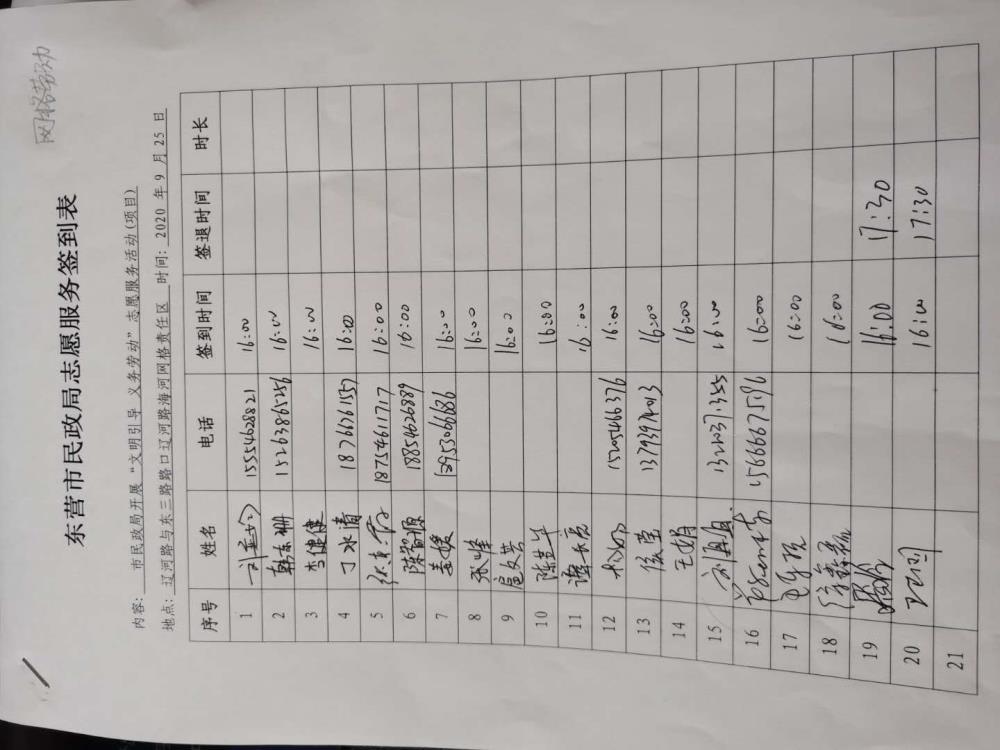 网格劳动
东营市民政局志愿服务签到表
内容: 市民政局开展“文明引导 义务劳动”志愿服务活动(项目)
地点: 辽河路与东三路路口辽河路海河网格责任区 时间: 2020 年 9 月 25 日
序号 姓名 电话 签到时间 签退时间 时长
1 15554628821 16:00
2 韩东珊 15263865256 16:00
3 李健健 16:00
4 丁水清 18766761557 16:00
5 18754611717 16:00
6 陈智源 18854626889 16:00
7 姜媛 13953066686 16:00
8 张峰 16:00
9 扈文芸 16:00
10 16:00
11 谭乐亮 16:00
12 15205466376 16:00
13 侯莹 16:00
14 王娟 16:00
15 16:00
16 15666675196 16:00
17 16:00
18 16:00
19 16:00 17:30
20 16:00 17:30
21